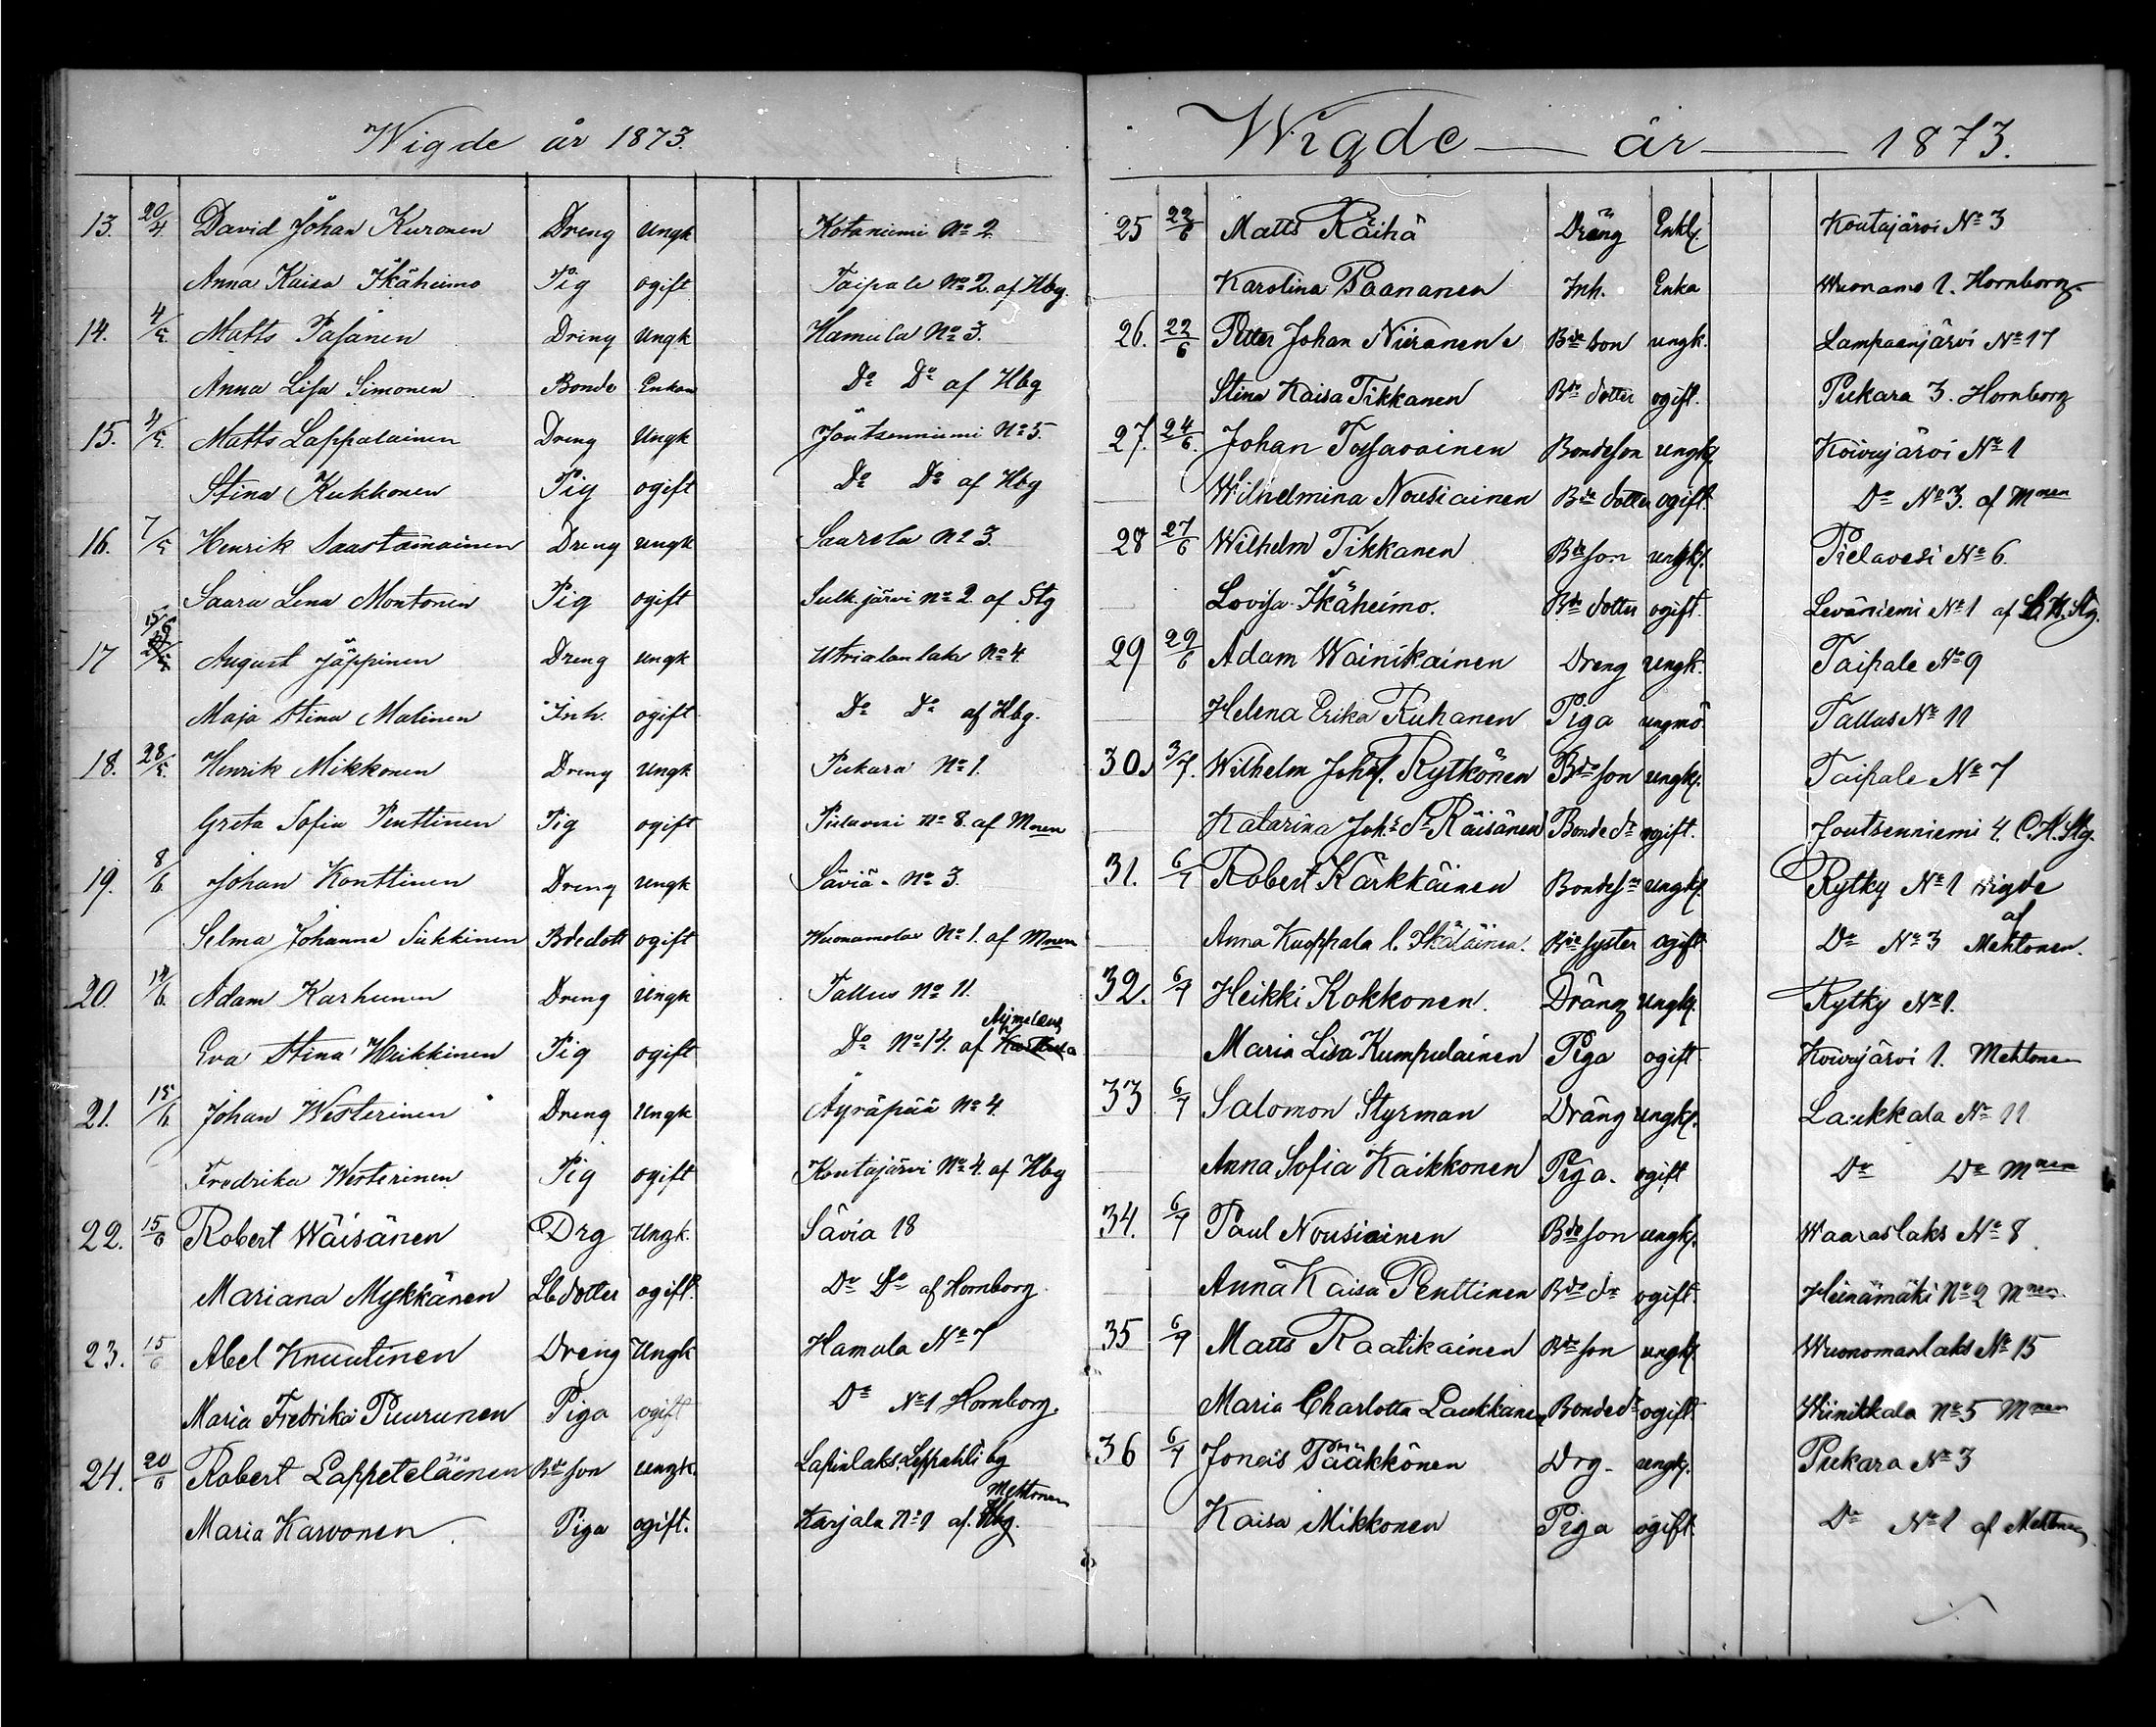 Wigde år 1873.
13. 20/4 David Johan Kuronen Dreng Ungk Kotaniemi No 2.
Anna Kaisa Ikäheimo Pig ogift Taipale No 2. af Hbg.
14. 4/5 Matts Pasanen Dreng Ungk Hamula No 3.
Anna Lisa Simonen Bonde Enkan Do Do af Hbg
15. 4/5 Matts Lappalainen Dreng Ungk Joutsenniemi No 5.
Stina Kukkonen Pig ogift Do Do af Hbg
16. 7/5 Henrik Saastamoinen Dreng ungk Saarela No 3.
Saara Lena Montonen Pig ogift Sulk.järvi No 2. af Stg
17 15/6 August Jäppinen Dreng ungk Utrialanlaks No 4.
Maja Stina Malinen Inh. ogift Do Do af Hbg.
18. 28/5 Henrik Mikkonen Dreng Ungk Pukara No 1.
Greta Sofia Penttinen Pig ogift Pielavesi No 8. af Mnen
19. 8/6 Johan Konttinen Dreng ungk Säviä No 3.
Selma Johanna Tikkinen Bdedott ogift Wuonamolax No 1. af Mnen
20. Adam Karhunen Dreng Ungk Tallus No 11.
Eva Stina Heikkinen Pig ogift Do No 14. af
21. 15/6 Johan Westerinen Dreng Ungk Äyräpää No 4.
Fredrika Westerinen Pig ogift Koutajärvi No 4. af Hbg
22. 15/6 Robert Wäisänen Drg Ungk. Sävia 18
Mariana Mykkänen Lbdotter ogift. Do Do af Hornborg.
23. 15/6 Abel Knuutinen Dreng Ungk Hamula No 7
Maria Fredrika Puurunen Piga ogift Do No 1 Hornborg.
24. 20/6 Robert Lappeteläinen Bde son ungk. Lapinlaks, Leppahti by
Mehtonen
Maria Karvonen Piga ogift. Karjala No 1 af. Hbg.
Wigde år 1873.
25 22/6 Matts Räihä Dräng Enkl. Koutajärvi No 3
Karolina Paananen Inh. Enka Wuonamo 1. Hornborg
26. 22/6 Petter Johan Niiranen Bde son ungk. Lampaanjärvi No 17
Stina Kaisa Tikkanen Bde dotter ogift. Pukara 3. Hornborg
27. 24/6. Johan Tossavainen Bondeson ungk. Koivujärvi No 1
Wilhelmina Nousiainen Bde dotter ogift. Do No 3. af Mnen
28 27/6 Wilhelm Tikkanen Bde son ungk. Pielavesi No 6.
Lovisa Ikäheimo. Bde dotter ogift. Leväniemi No 1 af C.K. Stg.
29 29/6 Adam Wainikainen Dreng ungk. Taipale No 9
Helena Erika Ruhanen Piga ungmö Tallus No 11
30. 3/7. Wilhelm Johs. Rytkönen Bde son ungk. Taipale No 7
Katarina Johs dr Räisänen Bonde dr ogift. Joutsenniemi 4. C.K. Stg.
31. 6/7 Robert Kärkkäinen Bonde sn ungk. Rytky No 1 wigde
af
Anna Kuoppala l. Ikäläinen. Bde syster ogift Do No 3 Mehtonen.
32. 6/7 Heikki Kokkonen. Dräng ungk. Rytky No 1.
Maria Lisa Kumpulainen Piga ogift Koivujärvi 1. Mehtonen
33 6/7 Salomon Styrman Dräng ungk. Laukkala No 11
Anna Sofia Kaikkonen Piga. ogift Do Do Mnen
34. 6/7 Paul Nousiainen Bde son ungk. Waaraslaks No 8.
Anna Kaisa Penttinen Bde dr ogift. Heinämäki No 2 Mnen.
35 6/7 Matts Raatikainen Bde son ungk. Wuonomanlaks No 15
Maria Charlotta Laukkanen Bonde dr ogift Wiinikkala No 5 Mnen
36 6/7 Jonas Pääkkönen Drg. ungk. Pukara No 3
Kaisa Mikkonen Piga ogift Do No 1 af Mehtonen